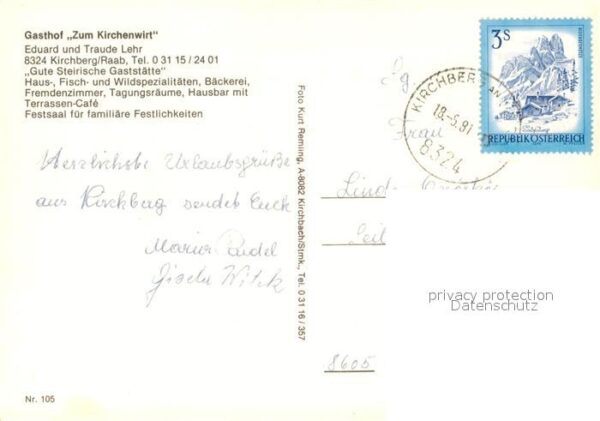 Gasthof „Zum Kirchenwirt"
Eduard und Traude Lehr
8324 Kirchberg/Raab, Tel. 0 31 15 / 24 01
„Gute Steirische Gaststätte"
Haus-, Fisch- und Wildspezialitäten, Bäckerei,
Fremdenzimmer, Tagungsräume, Hausbar mit
Terrassen-Café
Festsaal für familiäre Festlichkeiten
Herzlichste Urlaubsgrüße
aus Kirchberg sendet Euch
Maria
Gisela
Nr. 105
Foto Kurt Remling, A-8082 Kirchbach/Stmk., Tel. 0 31 16 / 357
3S
REPUBLIK ÖSTERREICH
KIRCHBERG AN
18.-5.81
8324
Frau
8605
privacy protection
Datenschutz